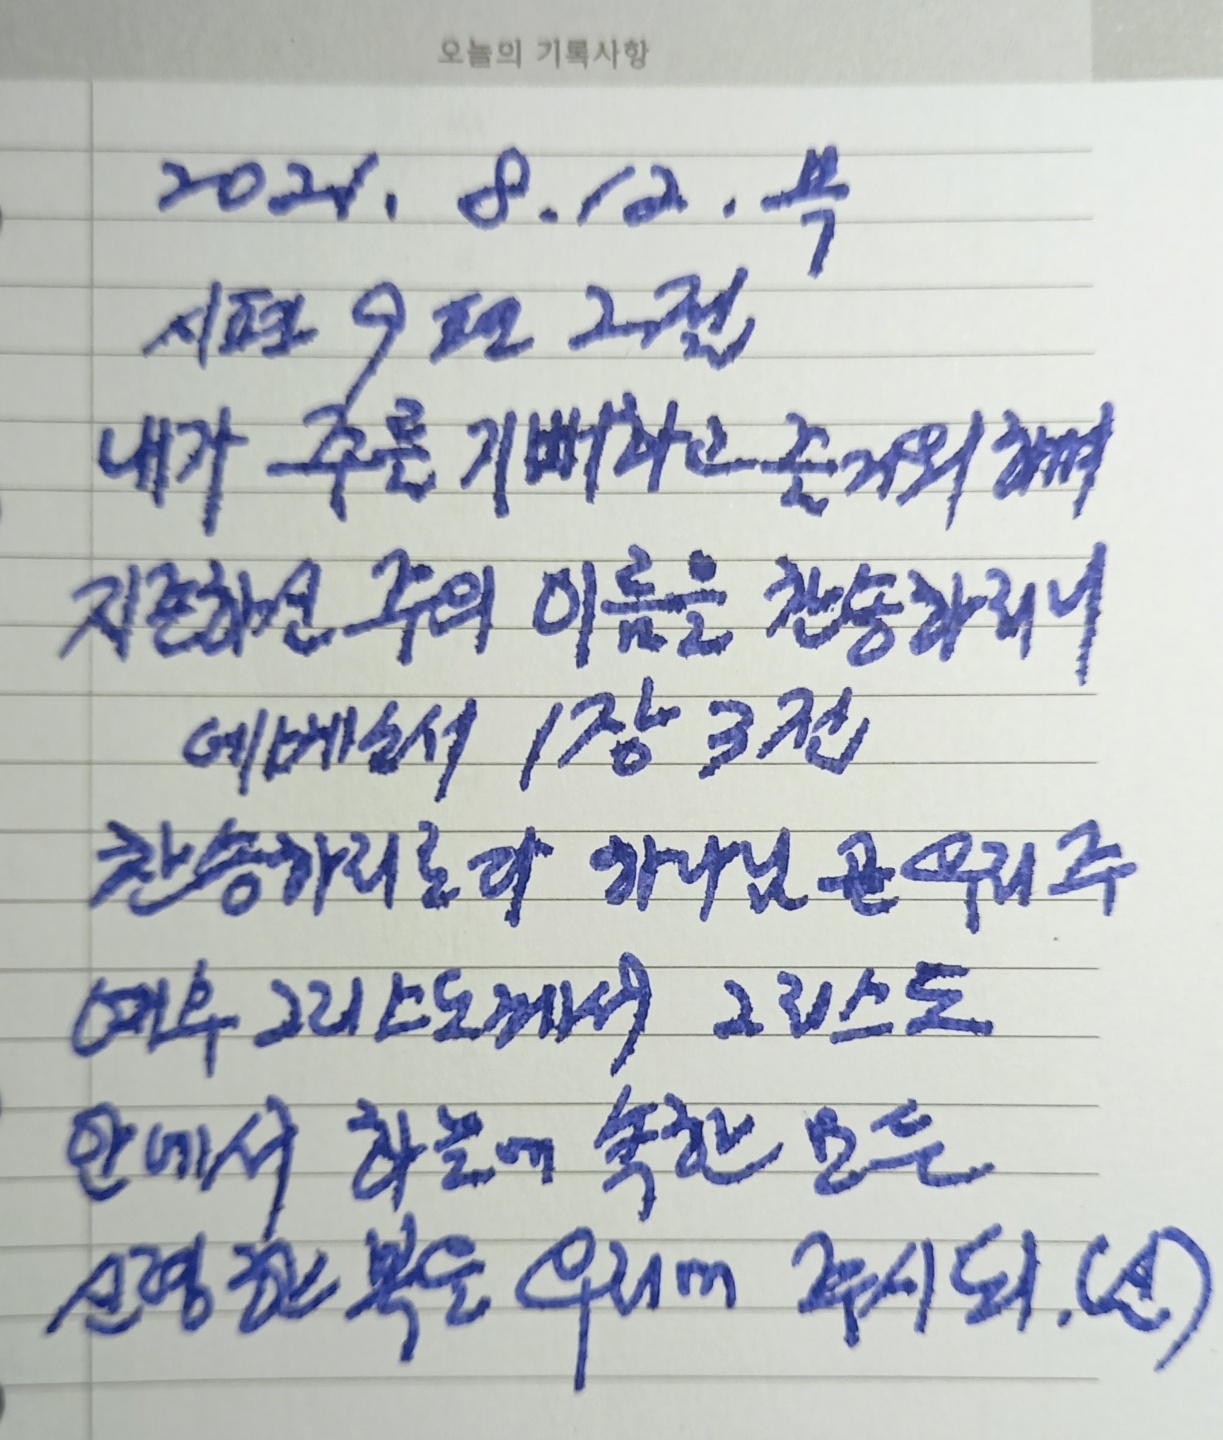 오늘의 기록사항
2021. 8. 12. 목
시편 9편 2절
내가 주를 기뻐하고 즐거워하며
지존하신 주의 이름을 찬송하리니
에베소서 1장 3절
찬송하리로다 하나님 곧 우리 주
예수 그리스도께서 그리스도
안에서 하늘에 속한 모든
신령한 복을 우리에 주시되.(신)